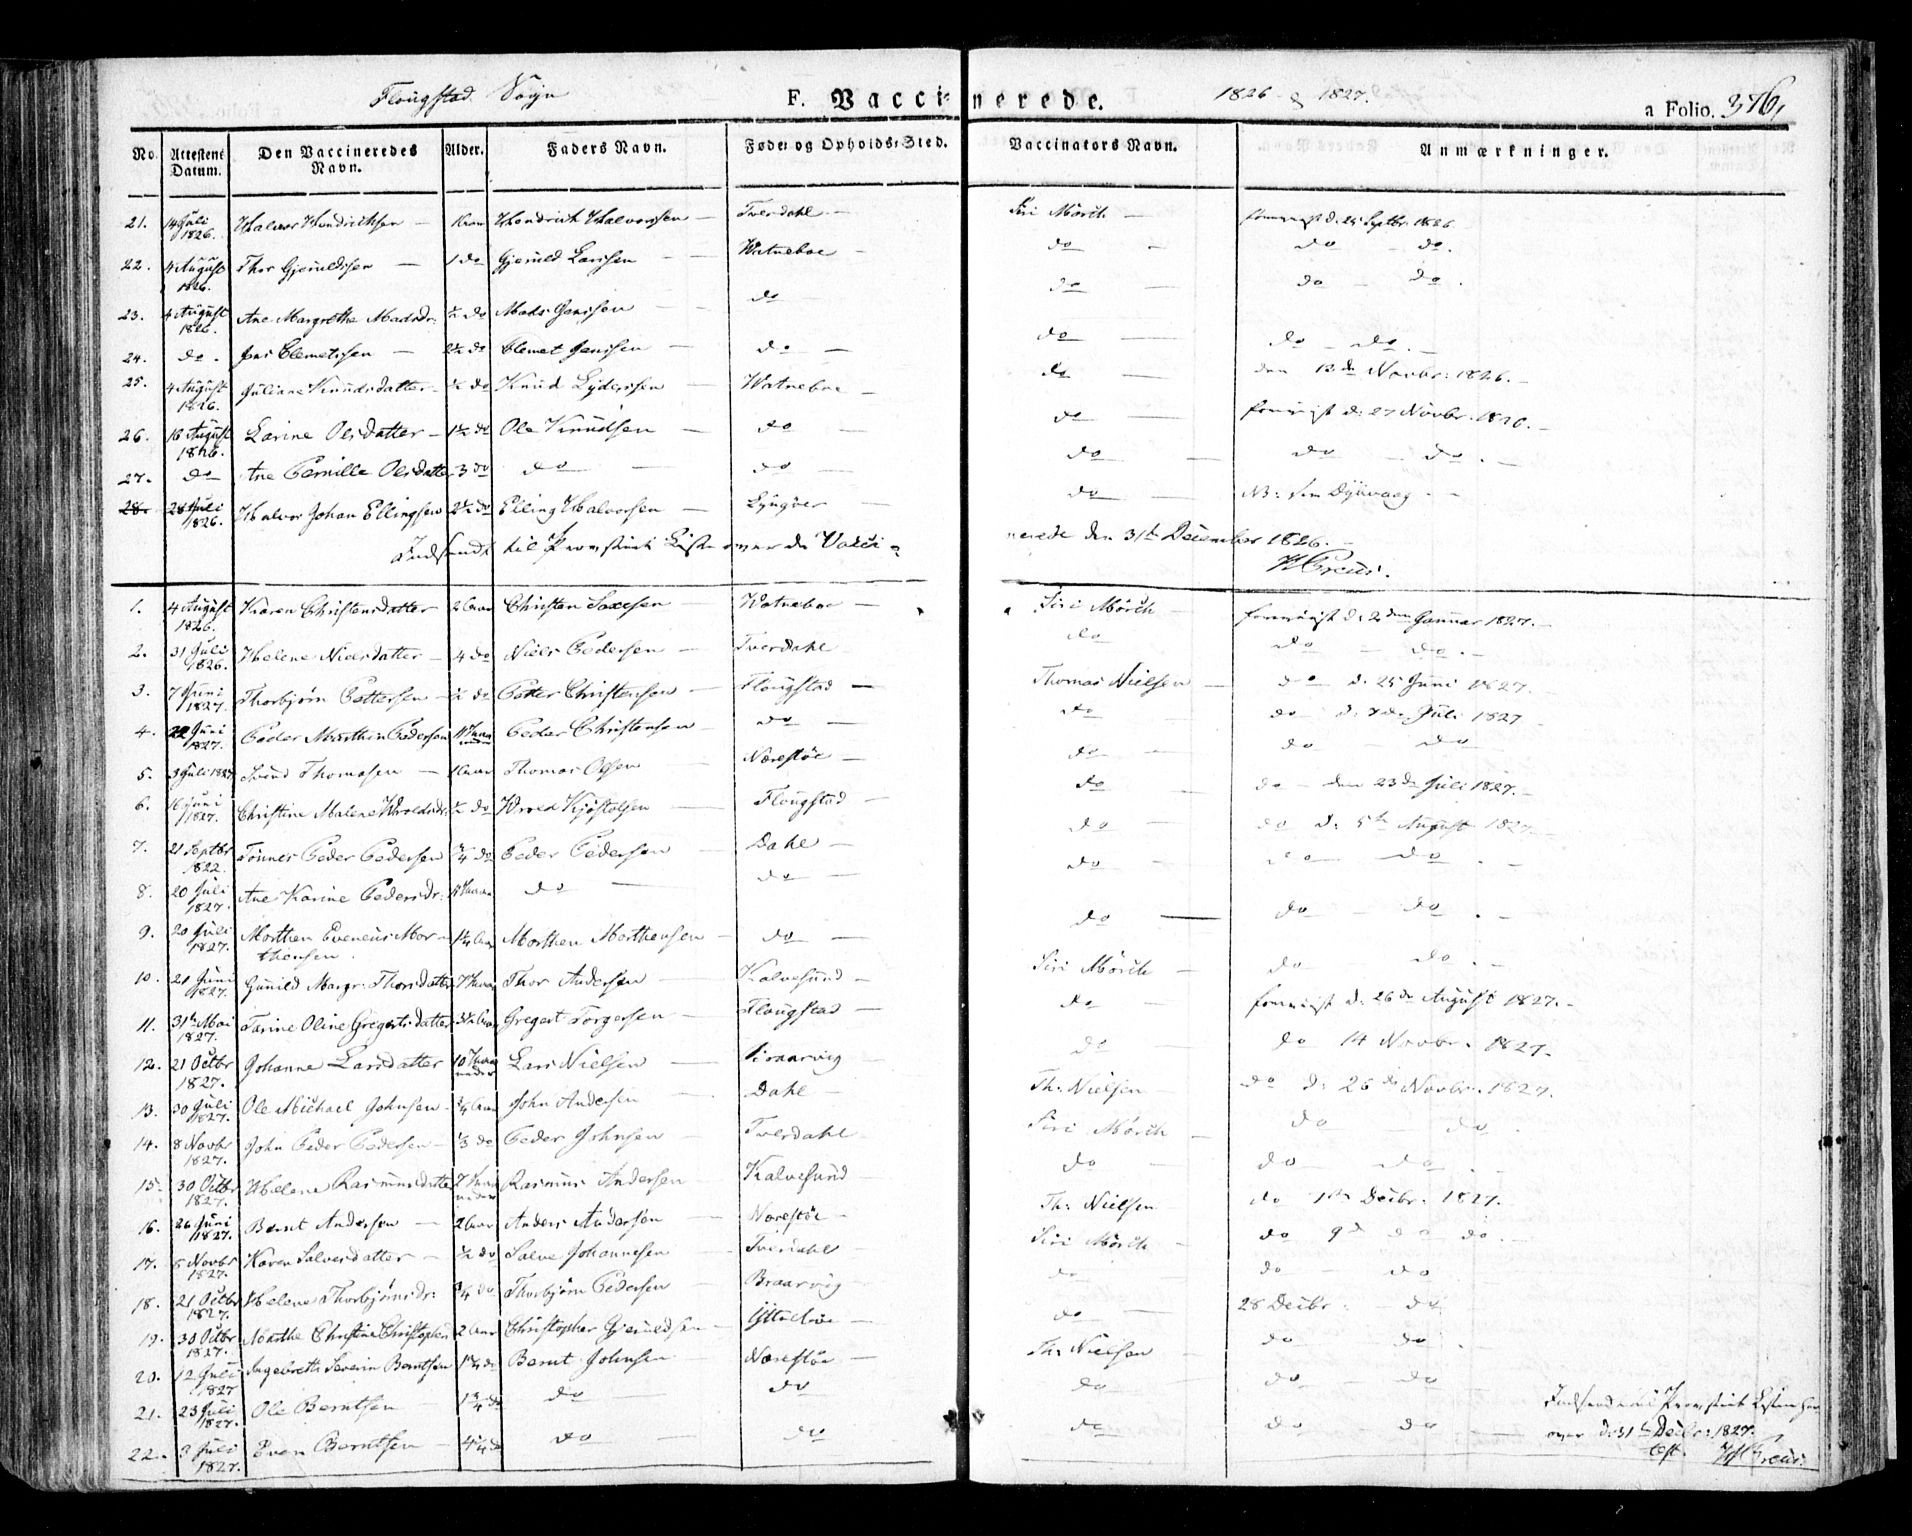 Flougstad Sogn F. Vaccinerede. 1826 & 1827. a Folio. 376,
No. Attestens Datum. Den Vaccineredes Navn. Alder. Faders Navn. Føde- og Opholds-Sted. Vaccinators Navn. Anmærkninger.
21. 14 Juli 1826. Halvor Hendrichsen — 1 aar Hendrich Halvorssen — Tverdahl — Siri Mörch — d. 25 Septbr. 1826
22. 4 August 1826. Thor Gjeruldssen — 1 do Gjeruld Larssen — Watneboe — do — do — do.
23. 4 August 1826. Ane Margrethe Madsdr: ½ do Mads Janssen — do do — do — do.
24. do. Jens Clemetssen — 2½ do Clemet Janssen — do — do — do — do. —
25. 4 August 1826. Juliane Knudsdatter — ½ do Knud Lyderssen — Watneboe — do — den 12 de Novbr: 1826. —
26. 16 August 1826. Larine Olesdatter — 1½ do Ole Knudsen — do — do — d: 27 Novbr. 1826. —
27. do Ane Pernille Olesdatter 3 do do — do — do — do — do. —
28. 28 Juli 1826. Halvor Johan Ellingsen 2½ do Elling Halvorsen — Lyngöer — do — NB: Dyüvaag —
Indsendt til Provstiet Liste over de Vacci-
nerede den 31te December 1826. —
H Creüs.
1. 4 August 1826. Karen Christensdatter 2 aar Christen Saxesen — Watneboe — Siri Mörch — d. 2den Januar 1827. —
2. 31 Juli 1826. Helene Nielsdatter — 4 do Niels Pedersen — Tverdahl do do — do. —
3. 7 Juni 1827. Thorbjørn Pettersen — ½ do Petter Christensen — Flougstad — Thomas Nielsen — do d. 25 Juni 1827. —
4. 22 Juni 1827. Peder Marthin Pedersen Peder Christensen — do — do do d. 8 de Juli 1827 —
5. 3 Juli 1827 Svend Thomasen — 1 aar Thomas Olsen Narestöe — do — do — do
6. 16 Juni 1827. Christine Malene Wroldsdr: ½ do Wrold Kjöstolsen — Flougstad — do do — den 23 de Juli 1827. —
7. 21 Septbr 1822. Tönnes Peder Pedersen ¾ do Peder Pedersen — Dahle — do — do d. 5te August 1827. —
8. 20 Juli 1827. Ane Karine Pedersdr: do — do — do — do — do. —
9. 20 Juli 1827. Morthen Evenius Mor- 1¼ aar Morthen Morthensen — do — do — do — do. —
thensen.
10. 21 Juni 1827. Gunild Margr: Thorsdatter Thor Andersen — Kalvesund — Siri Mörch — do do. —
11. 31te Mai 1827. Tarine Oline Gregertsdatter 3½ aar Gregert Torgersen — Flougstad — do — d. 26 de August 1827. —
12. 21 Octbr 1827. Johanne Larsdatter Lars Nielsen — Braarvig — do do 14 Novbr. 1827.
13. 30 Juli 1827. Ole Michael Johnsen ¾ aar John Andersen — Dahle — Th: Nielsen do d: 26 de Novbr. 1827.
14. 8 Novbr 1827. John Peder Pedersen — ⅓ do Peder Johnsen — Tverdahl Siri Mörch — do — do.
15. 30 Octbr 1827. Helene Rasmusdatter Rasmus Andersen Kalvesund — do — do — do. —
16. 26 Juni 1827. Bernt Andersen — 2 aar Anders Andersen — Narestöe — Th: Nielsen — do 1ste Decbr. 1827.
17. 8 Novbr 1827. Karen Salvesdatter — ½ do Salve Johannesen Tverdahl — Siri Mörch — do 9d do do. —
18. 21 Octbr 1827. Helene Thorbjörnsdr: ¾ do Thorbjörn Pedersen — Braarvig — do — do — do
19. 30 Octbr 1827. Marthe Christine Christophers 2 aar Christopher Gjeruldsen — do — 28 Decbr: — do
20. 12 Juli 1827 Ingebreth Severin Berntsen 1¾ do Bernt Johnsen Narestöe — Th: Nielsen — do do. —
21. 23 Juli 1827. Ole Berntsen — 1¾ do do — do do — do — do —
22. 3 Juli 1827. Even Berntsen — 4¼ do do — do do — do — do —
Indsendt til Provstiet Listen her-
over d. 31te Decbr: 1827.
H Creüs.